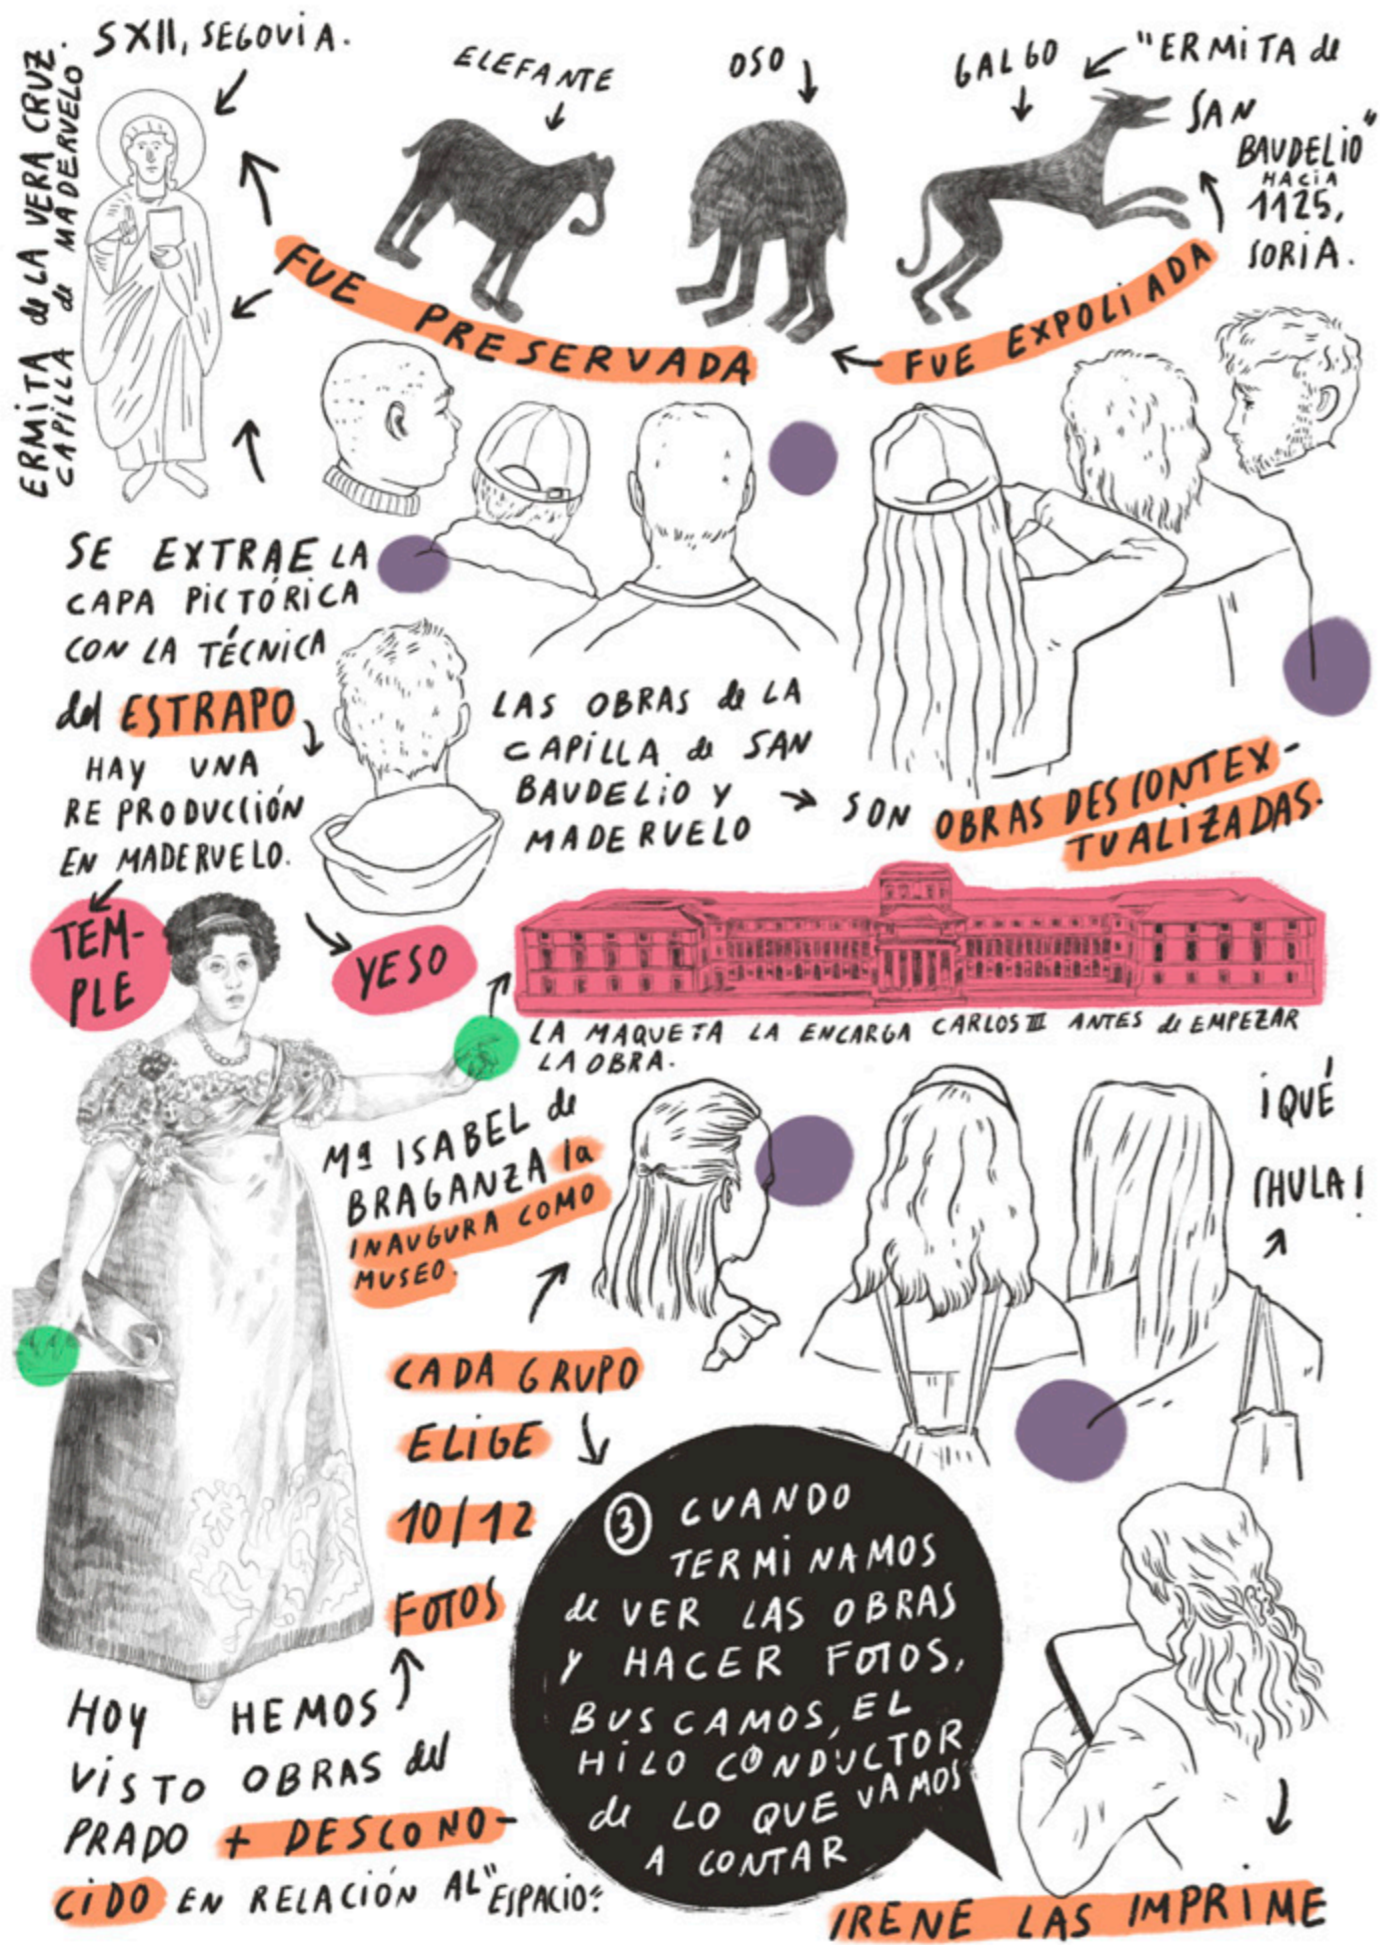 SXII, SEGOVIA.
ERMITA de LA VERA CRUZ.
CAPILLA de MADERUELO
ELEFANTE
OSO
GALGO
"ERMITA de
SAN
BAUDELIO"
HACIA
1125,
SORIA.
FUE PRESERVADA
FUE EXPOLIADA
SE EXTRAE LA
CAPA PICTÓRICA
CON LA TÉCNICA
del ESTRAPO
HAY UNA
REPRODUCCIÓN
EN MADERUELO.
LAS OBRAS de LA
CAPILLA de SAN
BAUDELIO Y
MADERUELO
SON OBRAS DESCONTEX-
TUALIZADAS.
TEM-
PLE
YESO
LA MAQUETA LA ENCARGA CARLOS III ANTES de EMPEZAR
LA OBRA.
Mª ISABEL de
BRAGANZA la
INAUGURA COMO
MUSEO.
¡QUÉ
CHULA!
CADA GRUPO
ELIGE
10/12
FOTOS
③ CUANDO
TERMINAMOS
de VER LAS OBRAS
Y HACER FOTOS,
BUSCAMOS, EL
HILO CONDUCTOR
de LO QUE VAMOS
A CONTAR
HOY HEMOS
VISTO OBRAS del
PRADO + DESCONO-
CIDO EN RELACIÓN AL "ESPACIO".
IRENE LAS IMPRIME